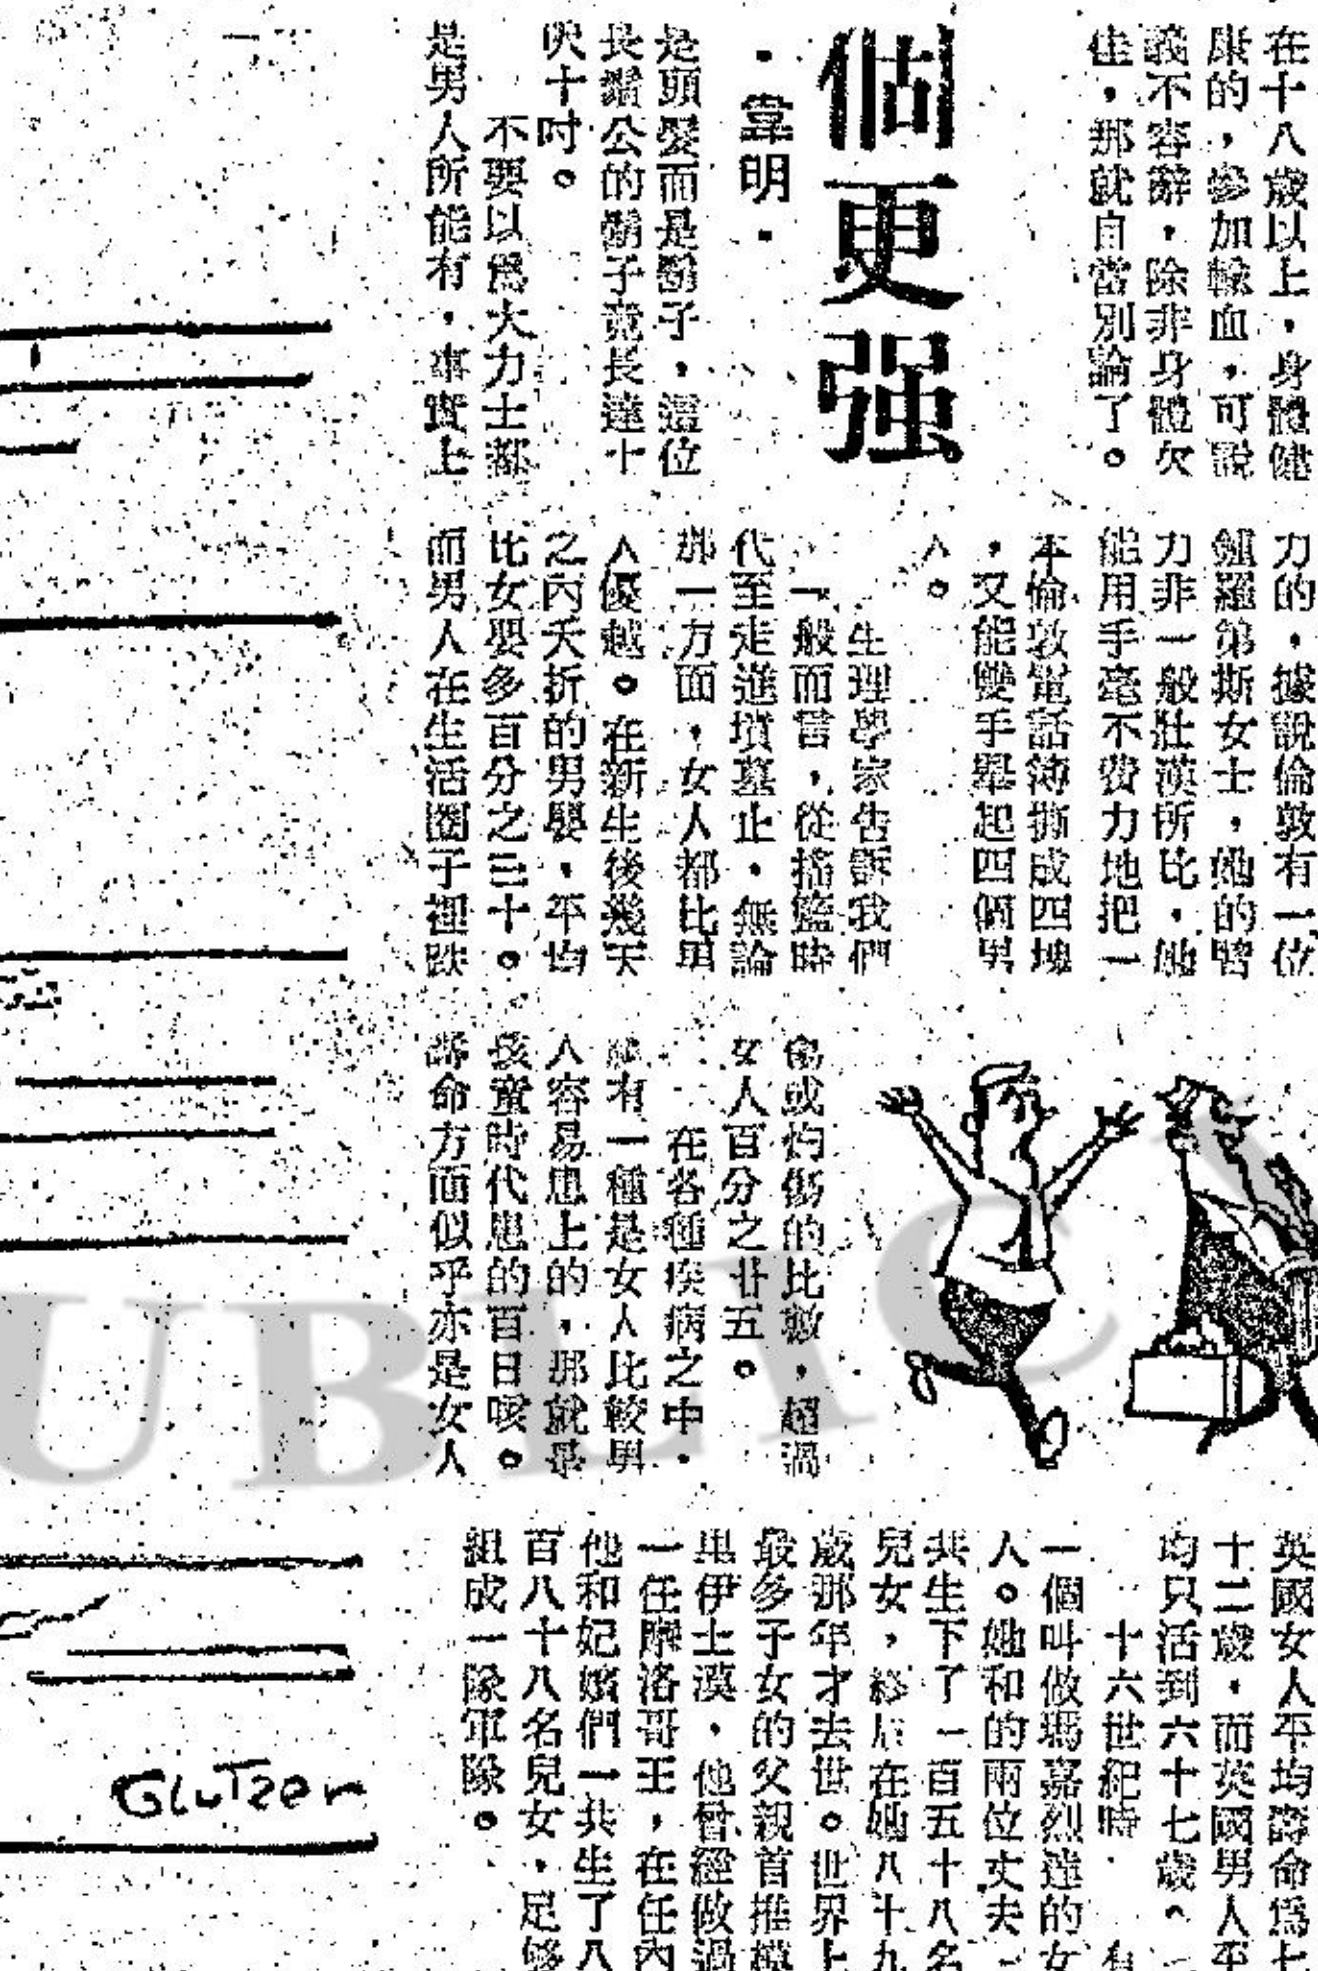 在十八歲以上，身體健
康的，參加輸血，可說
義不容辭，除非身體欠
佳，那就自當別論了。
個更强
·韋明·
是頭髮而是鬍子，這位
長鬍公的鬍子竟長達十
呎十吋。
不要以爲大力士都
是男人所能有，事實上
力的，據說倫敦有一位
鑪羅第斯女士，她的臂
力非一般壯漢所比，她
能用手毫不費力地把一
本倫敦電話簿撕成四塊
，又能雙手舉起四個男
人。
生理學家告訴我們
一般而言，從搖籃時
代至走進墳墓止，無論
那一方面，女人都比男
人優越。在新生後幾天
之內夭折的男嬰，平均
比女嬰多百分之三十。
而男人在生活圈子裡跌
傷或灼傷的比數，超過
女人百分之廿五。
在各種疾病之中，
有一種是女人比較男
人容易患上的，那就是
孩童時代患的百日咳。
壽命方面似乎亦是女人
英國女人平均壽命爲七
十二歲，而英國男人平
均只活到六十七歲。
十六世紀時 有
一個叫做瑪嘉烈達的女
人。她和的兩位丈夫一
共生下了一百五十八名
兒女，終后在她八十九
歲那年才去世。世界上
最多子女的父親首推摸
里伊士漠，他曾經做過
一任摩洛哥王，在任內
他和妃嬪們一共生了八
百八十八名兒女，足够
組成一隊軍隊。
GLuTzer
UBLIC